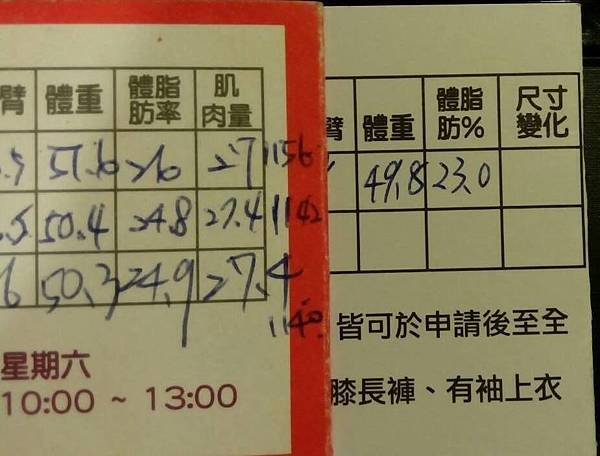 臂 體重 體脂肪率 肌肉量
.5 51.6 26 27 1156
.5 50.4 24.8 27.4 1142
6 50.3 24.9 27.4
1140
星期六
10:00 ~ 13:00
臂 體重 體脂肪% 尺寸變化
49.8 23.0
皆可於申請後至全
膝長褲、有袖上衣